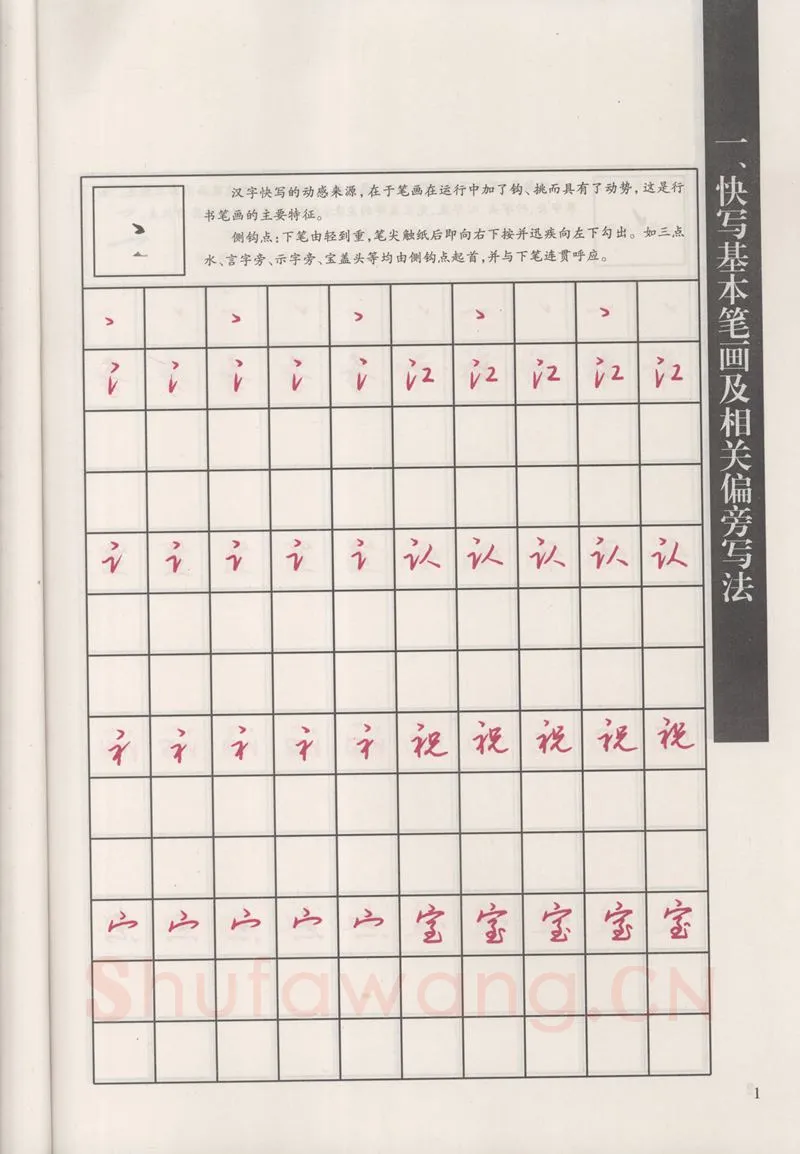 一、快写基本笔画及相关偏旁写法
汉字快写的动感来源，在于笔画在运行中加了钩、挑而具有了动势，这是行
书笔画的主要特征。
侧钩点：下笔由轻到重，笔尖触纸后即向右下按并迅疾向左下勾出。如三点
水、言字旁、示字旁、宝盖头等均由侧钩点起首，并与下笔连贯呼应。
氵 氵 氵 氵 氵 江 江 江 江 江
讠 讠 讠 讠 讠 认 认 认 认 认
礻 礻 礻 礻 礻 祝 祝 祝 祝 祝
宀 宀 宀 宀 宀 室 室 室 室 室
Shufawang.CN
1